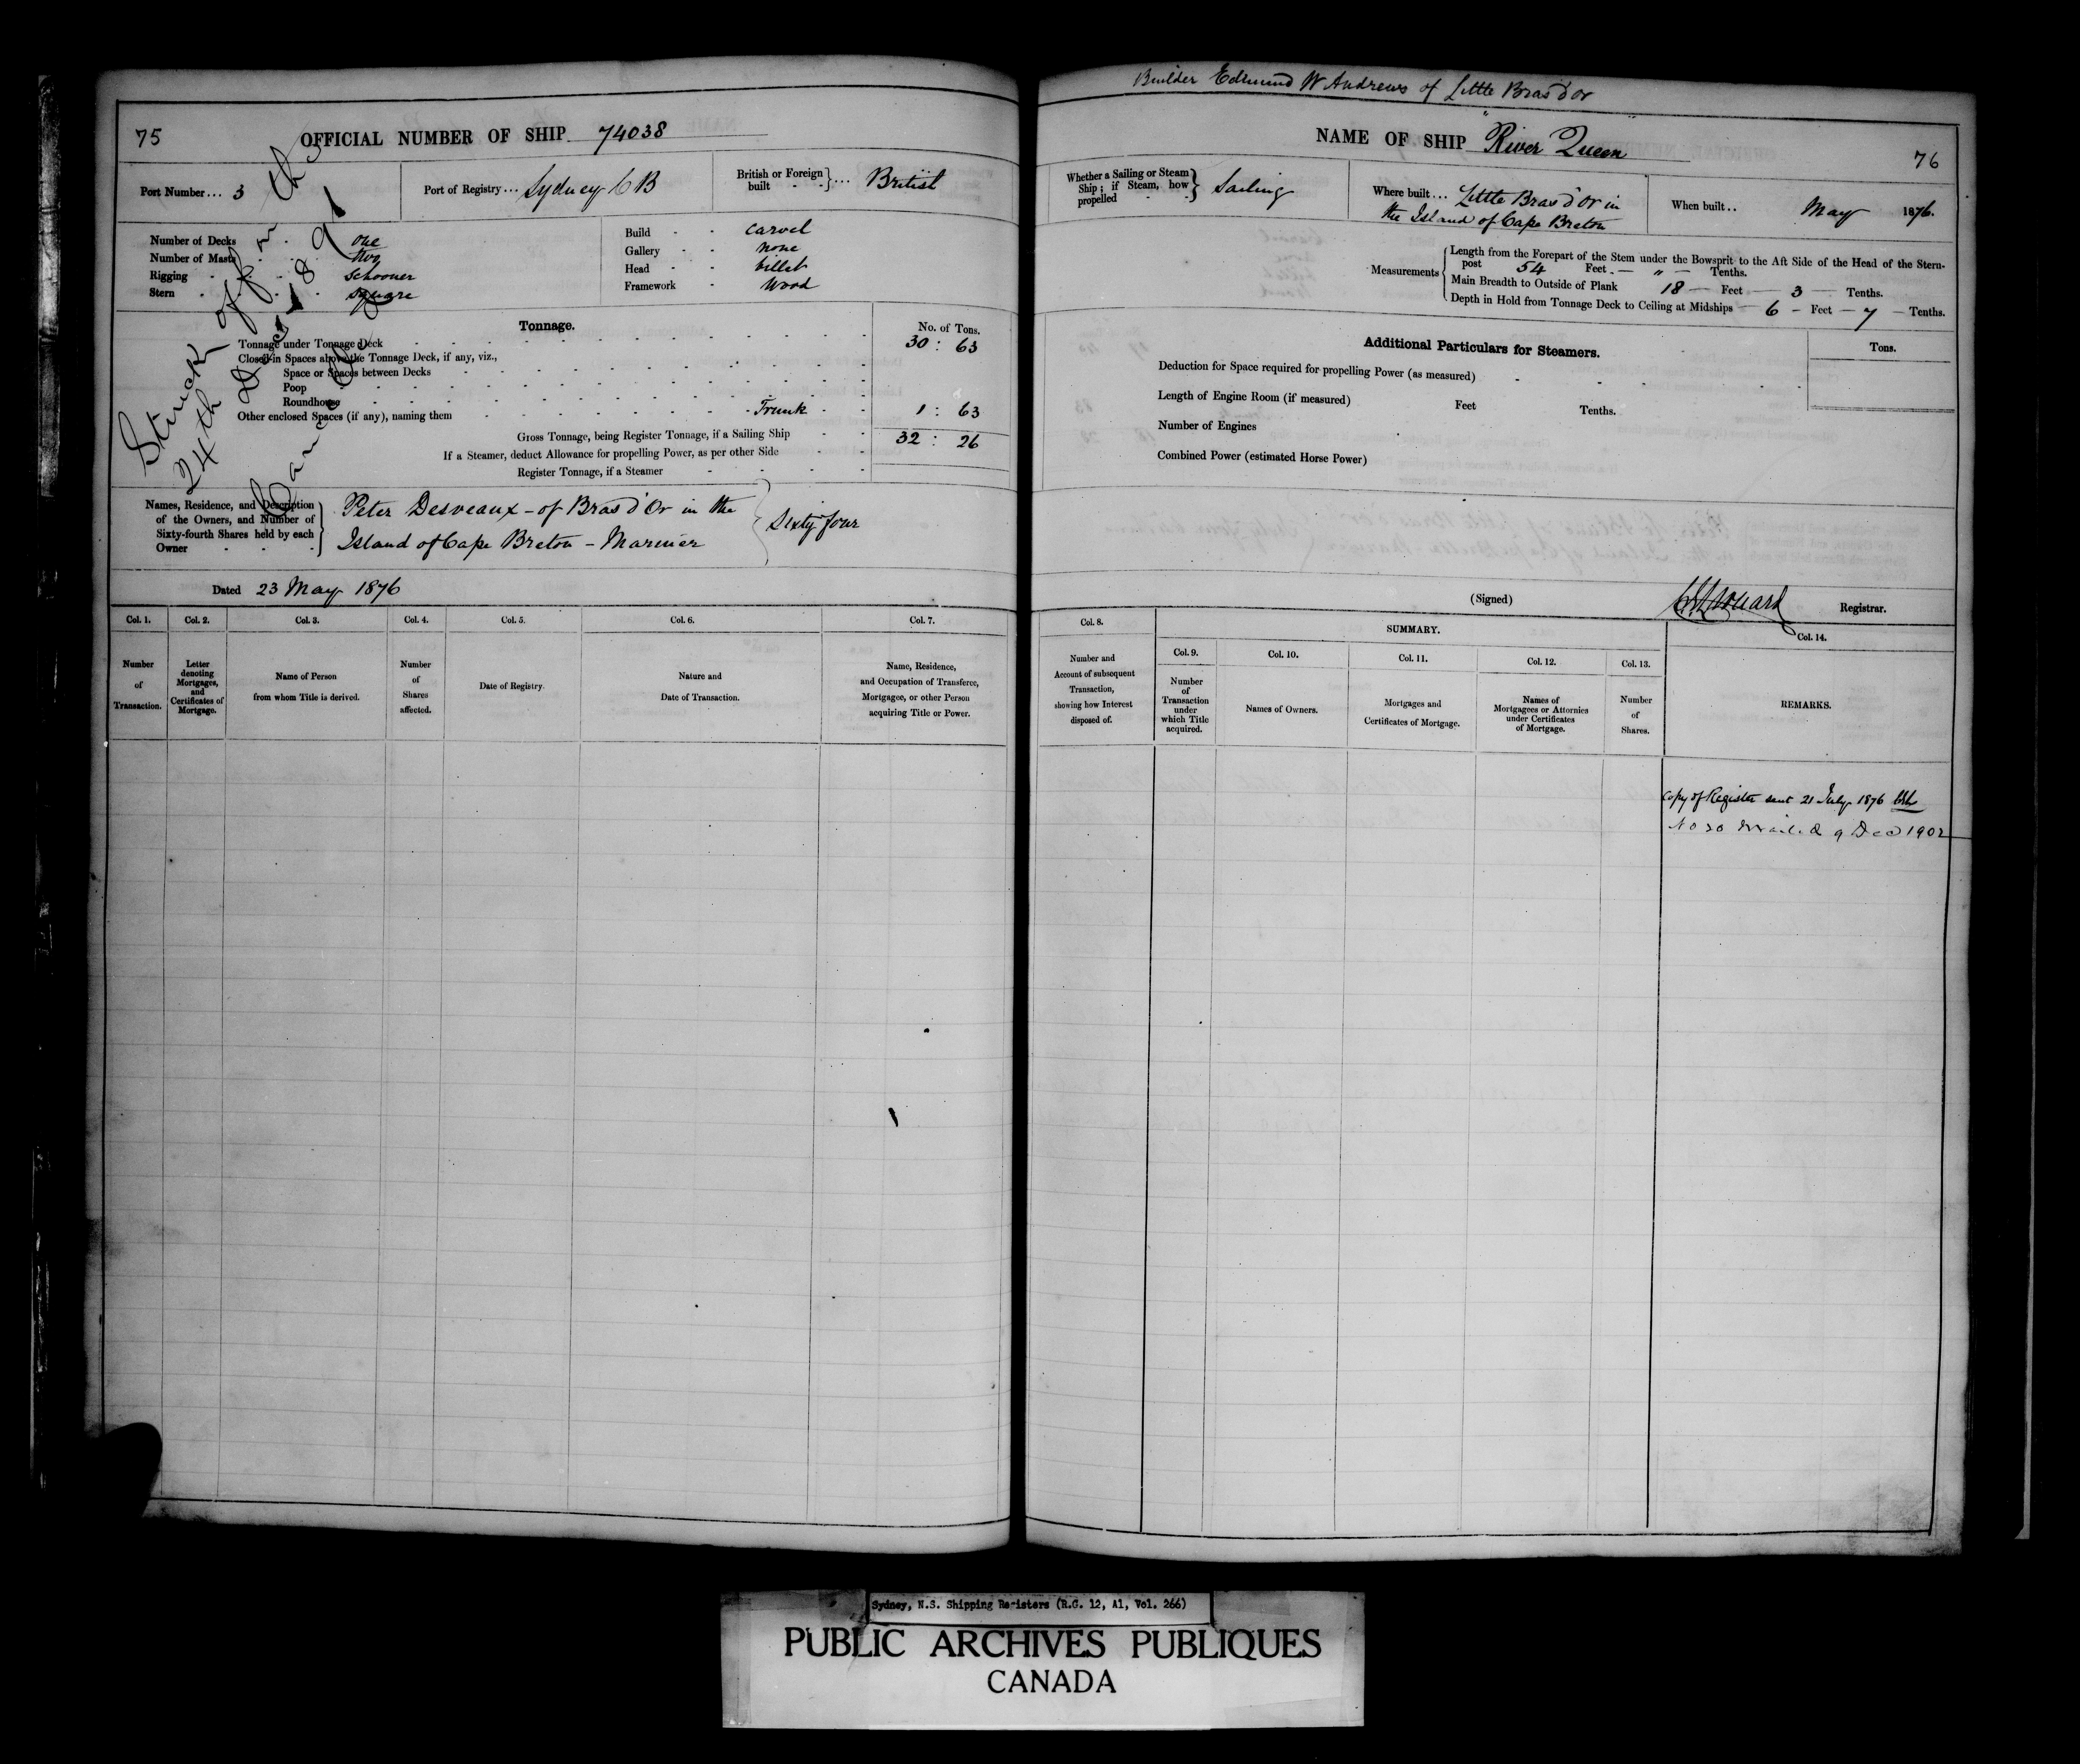 75
OFFICIAL NUMBER OF SHIP 74038
Port Number... 3
Port of Registry... Sydney C B
British or Foreign built - - } ... British
Number of Decks - one
Number of Masts - two
Rigging - Schooner
Stern - square
Build - - carvel
Gallery - - none
Head - - billet
Framework - Wood
Struck off on the
24th Dec 1891
Tonnage.
No. of Tons.
Tonnage under Tonnage Deck 30 : 63
Closed-in Spaces above the Tonnage Deck, if any, viz.,
Space or Spaces between Decks
Poop
Roundhouse
Other enclosed Spaces (if any), naming them Trunk 1 : 63
Gross Tonnage, being Register Tonnage, if a Sailing Ship 32 : 26
If a Steamer, deduct Allowance for propelling Power, as per other Side
Register Tonnage, if a Steamer
Names, Residence, and Description
of the Owners, and Number of
Sixty-fourth Shares held by each
Owner
Peter Desveaux - of Bras d'Or in the
Island of Cape Breton - Mariner
Sixty four
Dated 23 May 1876
Col. 1. Col. 2. Col. 3. Col. 4. Col. 5. Col. 6. Col. 7.
Number of Transaction.
Letter denoting Mortgages, and Certificates of Mortgage.
Name of Person from whom Title is derived.
Number of Shares affected.
Date of Registry.
Nature and Date of Transaction.
Name, Residence, and Occupation of Transferee, Mortgagee, or other Person acquiring Title or Power.
Builder Edmund W Andrews of Little Bras d'or
NAME OF SHIP "River Queen"
76
Whether a Sailing or Steam Ship; if Steam, how propelled - - } Sailing
Where built... Little Bras d'Or in
the Island of Cape Breton
When built.. May 1876.
Measurements
Length from the Forepart of the Stem under the Bowsprit to the Aft Side of the Head of the Stern-
post 54 Feet - " - Tenths.
Main Breadth to Outside of Plank 18 - Feet - 3 - Tenths.
Depth in Hold from Tonnage Deck to Ceiling at Midships - 6 - Feet - 7 - Tenths.
Additional Particulars for Steamers.
Tons.
Deduction for Space required for propelling Power (as measured)
Length of Engine Room (if measured) Feet Tenths.
Number of Engines
Combined Power (estimated Horse Power)
(Signed) Registrar.
Col. 8.
SUMMARY.
Col. 9. Col. 10. Col. 11. Col. 12. Col. 13. Col. 14.
Number and Account of subsequent Transaction, showing how Interest disposed of.
Number of Transaction under which Title acquired.
Names of Owners.
Mortgages and Certificates of Mortgage.
Names of Mortgagees or Attornies under Certificates of Mortgage.
Number of Shares.
REMARKS.
Copy of Register sent 21 July 1876
No 20 mailed 9 Dec 1902
Sydney, N.S. Shipping Registers (R.G. 12, A1, Vol. 266)
PUBLIC ARCHIVES PUBLIQUES
CANADA